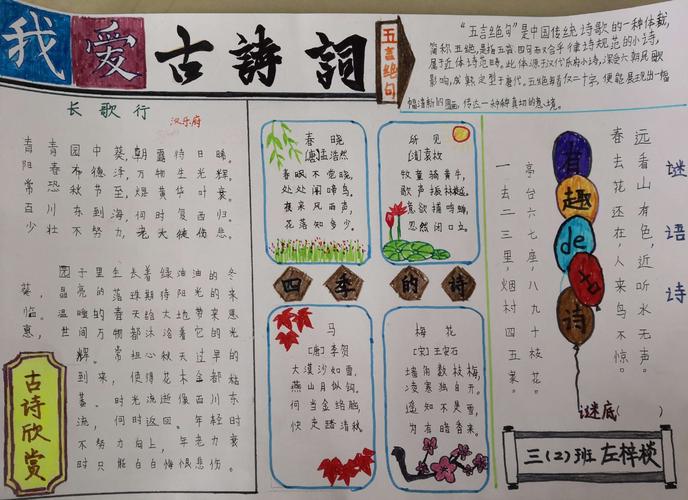 我爱古詩詞
五言绝句
"五言绝句"是中国传统诗歌的一种体裁,
简称五绝,是指五言四句而又合乎律诗规范的小诗,
属于近体诗范畴。此体源于汉代乐府小诗,深受六朝民歌
影响,成熟定型于唐代。五绝每首仅二十字,便能展现出一幅
幅清新的画,传达一种种真切的意境。
长歌行
汉乐府
青青园中葵,朝露待日晞。
阳春布德泽,万物生光辉。
常恐秋节至,焜黄华叶衰。
百川东到海,何时复西归。
少壮不努力,老大徒伤悲
春晓
[唐]孟浩然
春眠不觉晓,
处处闻啼鸟。
夜来风雨声,
花落知多少。
所见
[清]袁枚
牧童骑黄牛,
歌声振林樾。
意欲捕鸣蝉,
忽然闭口立。
四季的诗
马
[唐]李贺
大漠沙如雪,
燕山月似钩。
何当金络脑,
快走踏清秋。
梅花
[宋]王安石
墙角数枝梅,
凌寒独自开。
遥知不是雪,
为有暗香来。
古诗欣赏
园子里生长着绿油油的冬
葵,晶亮的落珠期待阳光的来
临。温暖的春天给大地带来恩
惠,世间万物都沐浴着它的光
辉。常担心秋天过早的
到来,使得花木全都枯
时光流逝
何时返回。年轻时
不努力向上,年老力衰
时只能白白悔恨悲伤。
谜语诗
远看山有色,近听水无声。
春去花还在,人来鸟不惊。
有趣de数诗
一去二三里,烟村四五家。
亭台六七座,八九十枝花。
谜底( )
三(2)班 左梓棪